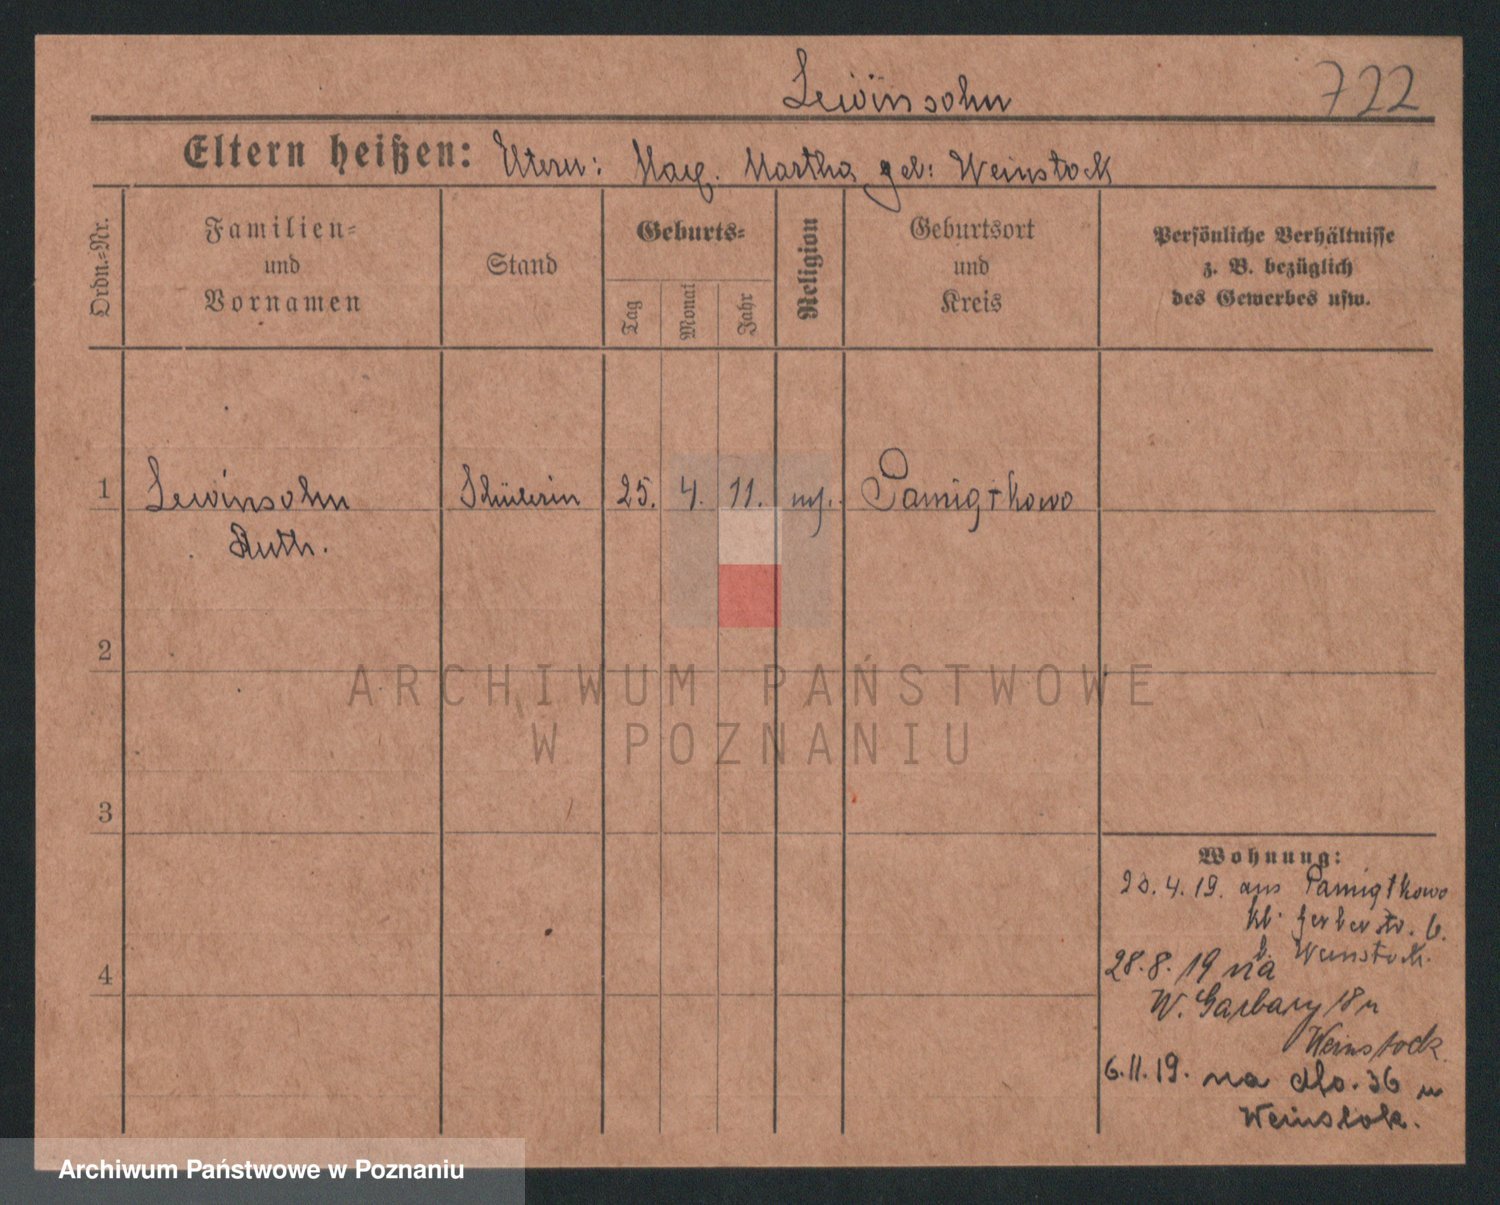 Lewinsohn 722
Eltern heißen: Eltern: Max. Martha geb: Weinstock
Ordn.-Nr.
Familien-
und
Vornamen
Stand
Geburts-
Tag
Monat
Jahr
Religion
Geburtsort
und
Kreis
Persönliche Verhältnisse
z. B. bezüglich
des Gewerbes usw.
1 Lewinsohn Schülerin 25. 4. 11. mos. Pamiątkowo
Ruth.
2
3
4
Wohnung:
23.4.19. aus Pamiątkowo
kl. Gerberstr. 6.
b. Weinstock.
28.8.19 na
W. Garbary 18 u
Weinstock.
6.11.19. na dto. 36 u
Weinstok.
ARCHIWUM PAŃSTWOWE
W POZNANIU
Archiwum Państwowe w Poznaniu